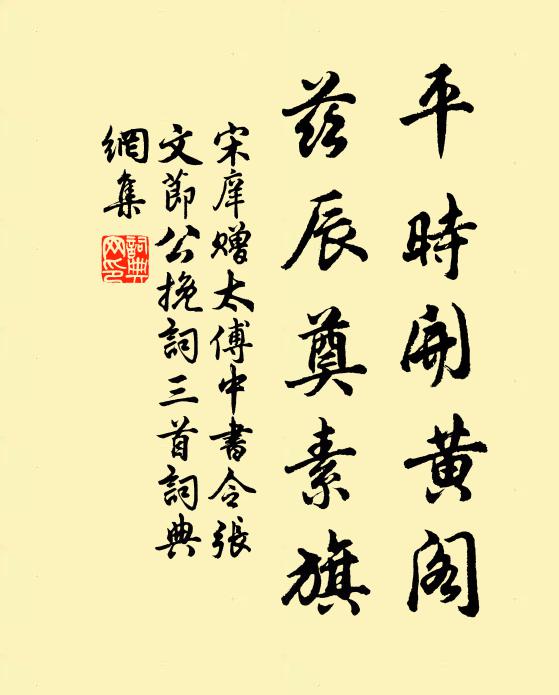 平時開黄阁
茲辰奠素旗
宋庠赠太傅中書令張
文節公挽詞三首詞典
網集
詞典
网印